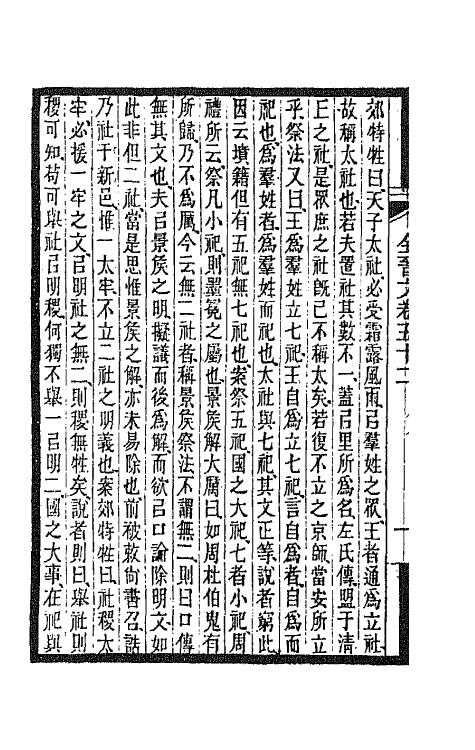 郊特牲曰、天子太社、必受霜露風雨、㠯羣姓之眾、王者通爲立社、
故稱太社也、若夫置社、其數不一、蓋㠯里所爲名、左氏傳盟于清
丘之社、是眾庶之社、旣已不稱太矣、若復不立之京師、當安所立
乎、祭法又曰、王爲羣姓立七祀、王自爲立七祀、言自爲者、自爲而
祀也、爲羣姓者、爲羣姓而祀也、太社與七祀、其文正等、說者窮此、
因云墳籍但有五祀、無七祀也、案祭五祀、國之大祀、七者小祀、周
禮所云祭凡小祀、則墨冕之屬也、景矦解大厲曰、如周杜伯鬼有
所歸、乃不爲厲、今云無二社者、稱景矦祭法不謂無二、則曰口傳
無其文也、夫㠯景矦之明、擬議而後爲解、而欲㠯口論除明文、如
此非但二社、當是思惟景矦之解、亦未易除也、前被敕尚書召誥
乃社于新邑、惟一太牢、不立二社之明義也、案郊特牲曰、社稷太
牢、必援一牢之文、㠯明社之無二、則稷無牲矣、說者則曰、舉社則
稷可知、苟可舉社㠯明稷、何獨不舉一㠯明二、國之大事、在祀與
全晉文卷五十二